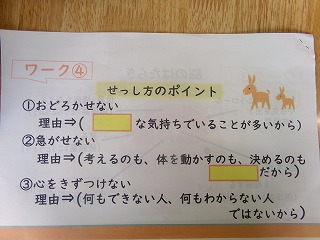 ワーク④
せっし方のポイント
①おどろかせない
理由⇒( な気持ちでいることが多いから)
②急がせない
理由⇒(考えるのも、体を動かすのも、決めるのも
だから)
③心をきずつけない
理由⇒(何もできない人、何もわからない人
ではないから)